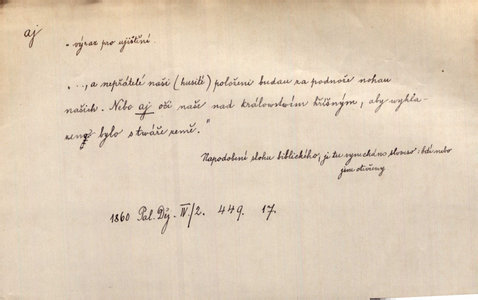 aj
- výraz pro ujištění.
"..., a nepřátelé naši (husité) položeni budau za podnože nohau
našich. Nebo aj oči naše nad královstwím hříšným, aby wyhla-
zeno bylo s twáře země."
Napodobení slohu biblického, je tu vynecháno sloveso: bdí nebo
jsou otevřeny
1860 Pal. Děj. IV/2. 449. 17.